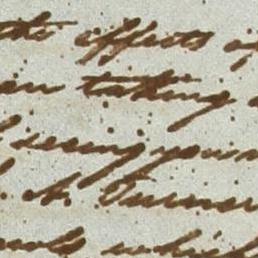 the effects of
an taking a
seeing your
A. Turner
which